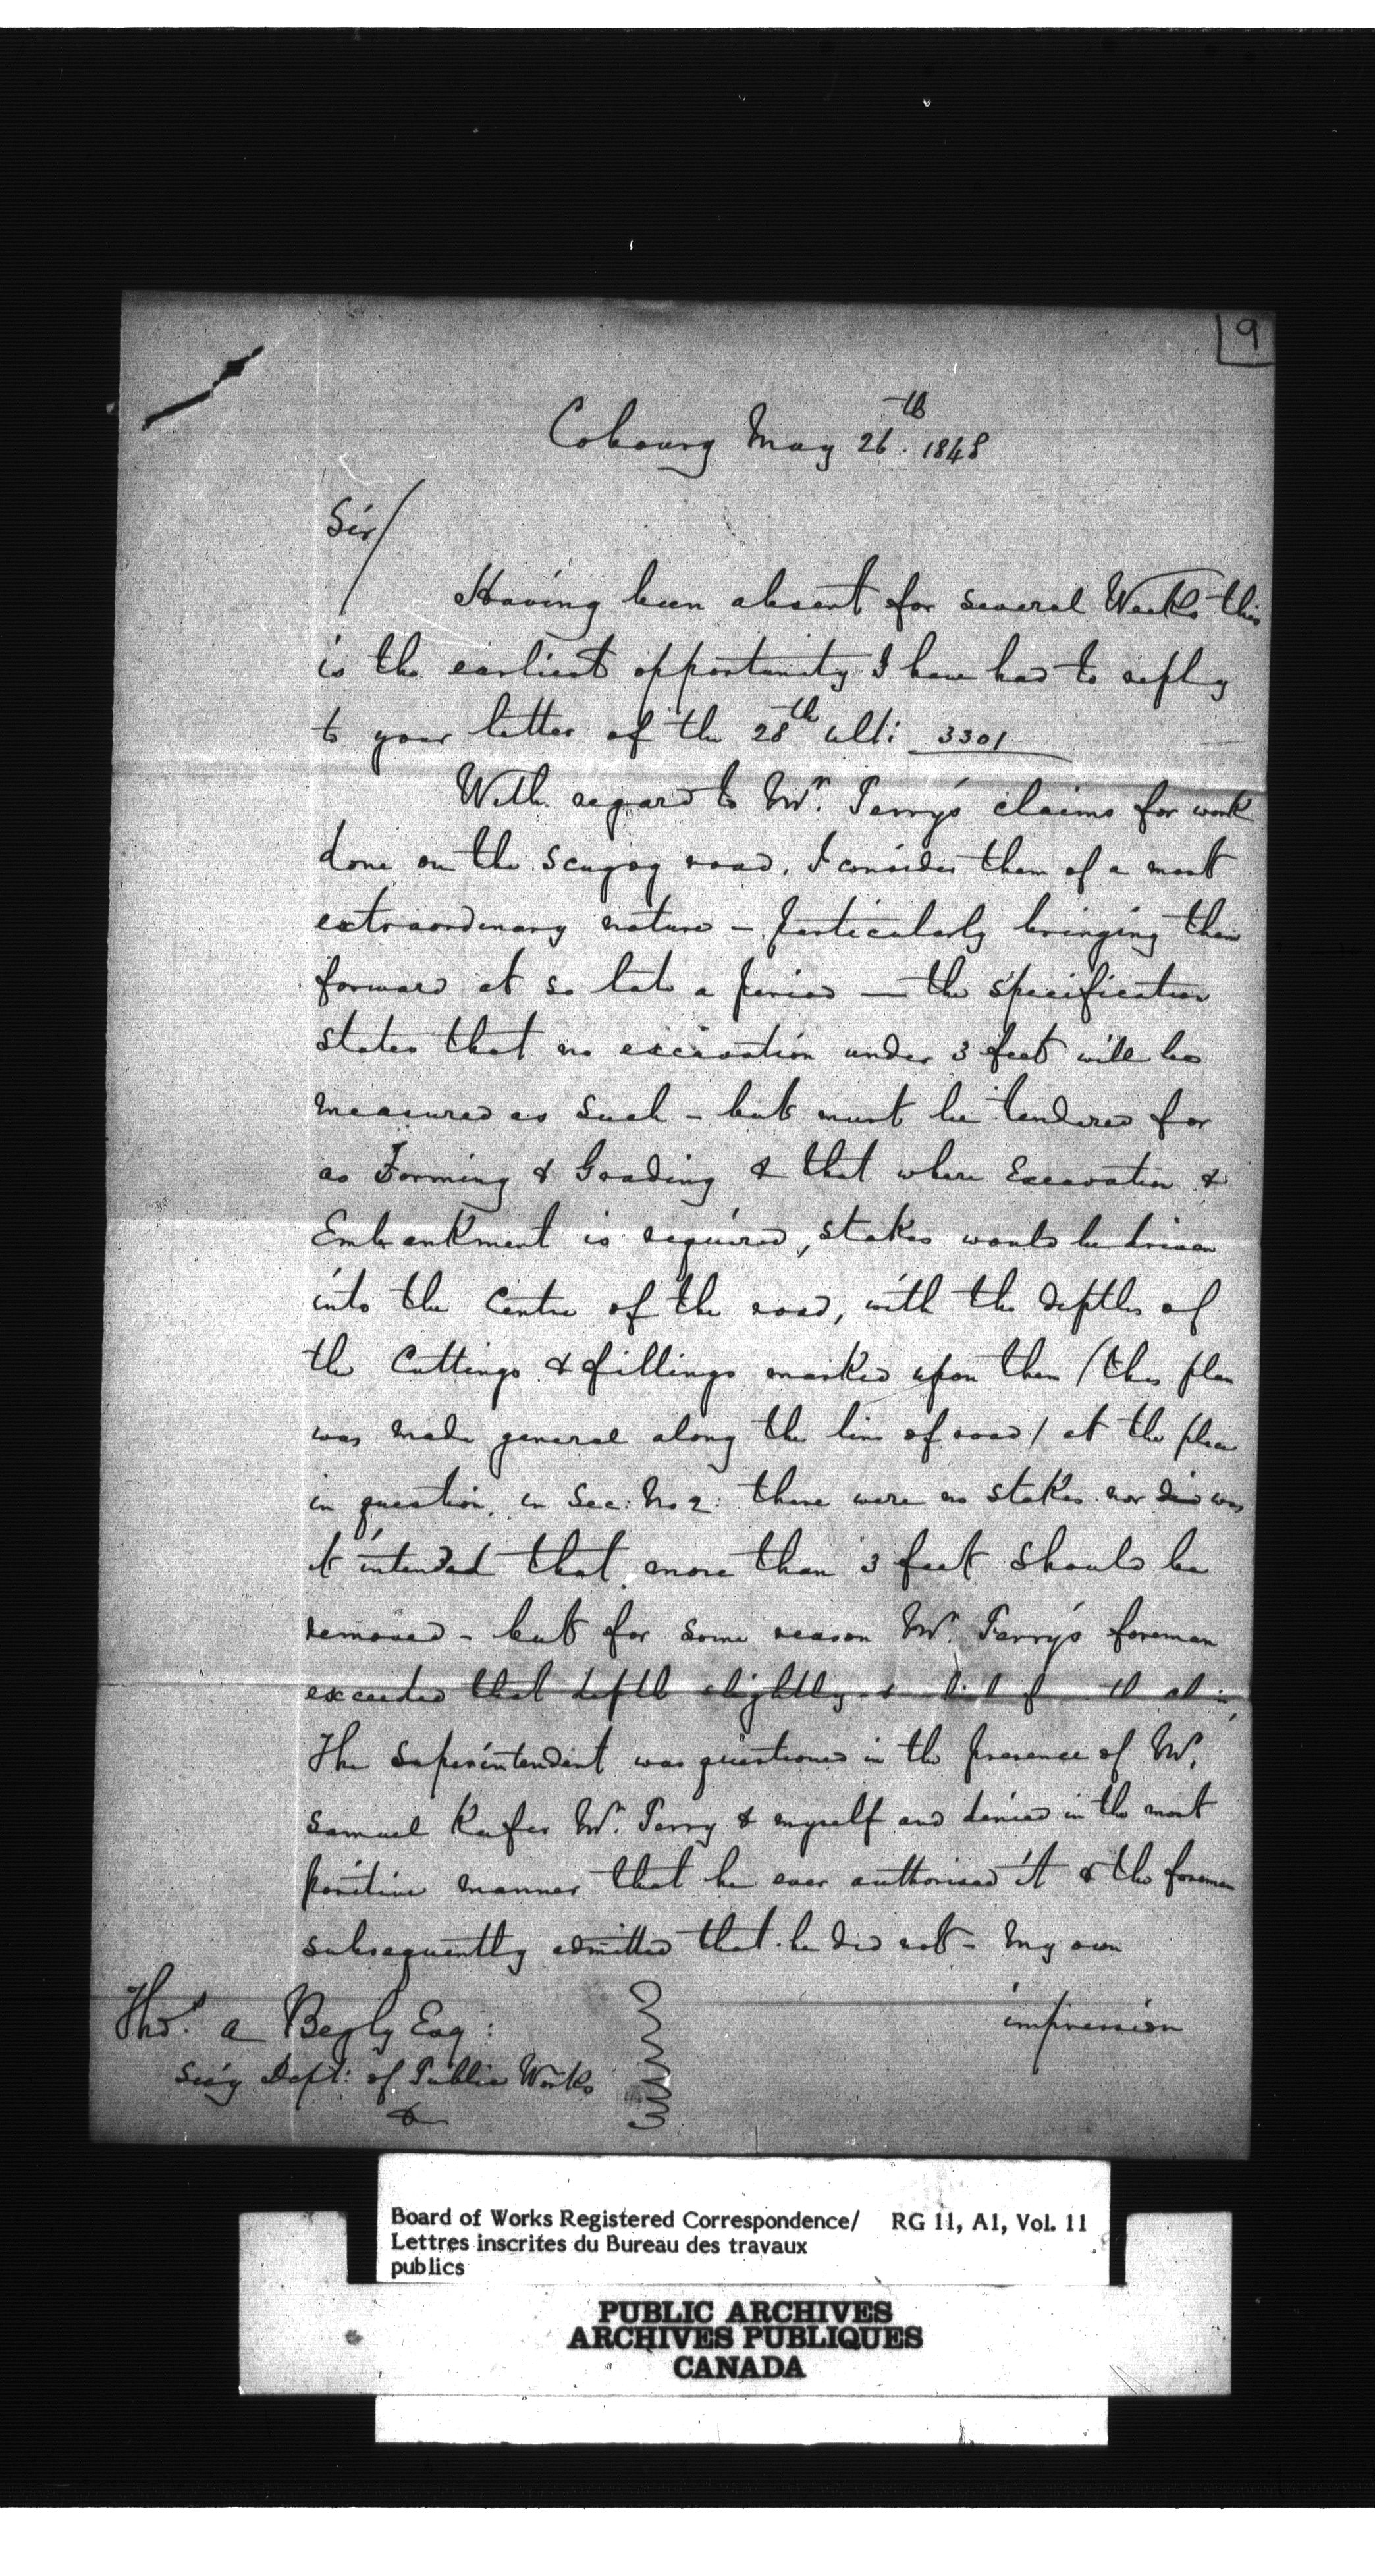 9
Cobourg May 26th. 1848
Sir/
Having been absent for several Weeks this
is the earliest opportunity I have had to reply
to your letter of the 28th ulti 3301
With regard to Mr. Perry's claims for work
done on the Scugog road, I consider them of a most
extraordinary nature - particularly bringing them
forward at so late a period — the specification
states that no excavation under 3 feet will be
measured as such - but must be tendered for
as Forming & Grading & that where Excavation &
Embankment is required, stakes would be driven
into the Centre of the road, with the depths of
the Cuttings & fillings marked upon them (this plan
was made general along the line of road) at the place
in question, in Sec: No 2: there were no stakes nor did was
it intended that more than 3 feet should be
removed - but for some reason Mr. Perry's foreman
exceeded that depth slightly &
The Superintendent was questioned in the presence of Mr.
Samuel Keefer Mr. Perry & myself and denied in the most
positive manner that he ever authorised it & the foreman
subsequently admitted that he did not - My own
impression
Thos. A Begly Esq:
Sec'y Dept: of Public Works
&
Board of Works Registered Correspondence/ RG 11, A1, Vol. 11
Lettres inscrites du Bureau des travaux
publics
PUBLIC ARCHIVES
ARCHIVES PUBLIQUES
CANADA